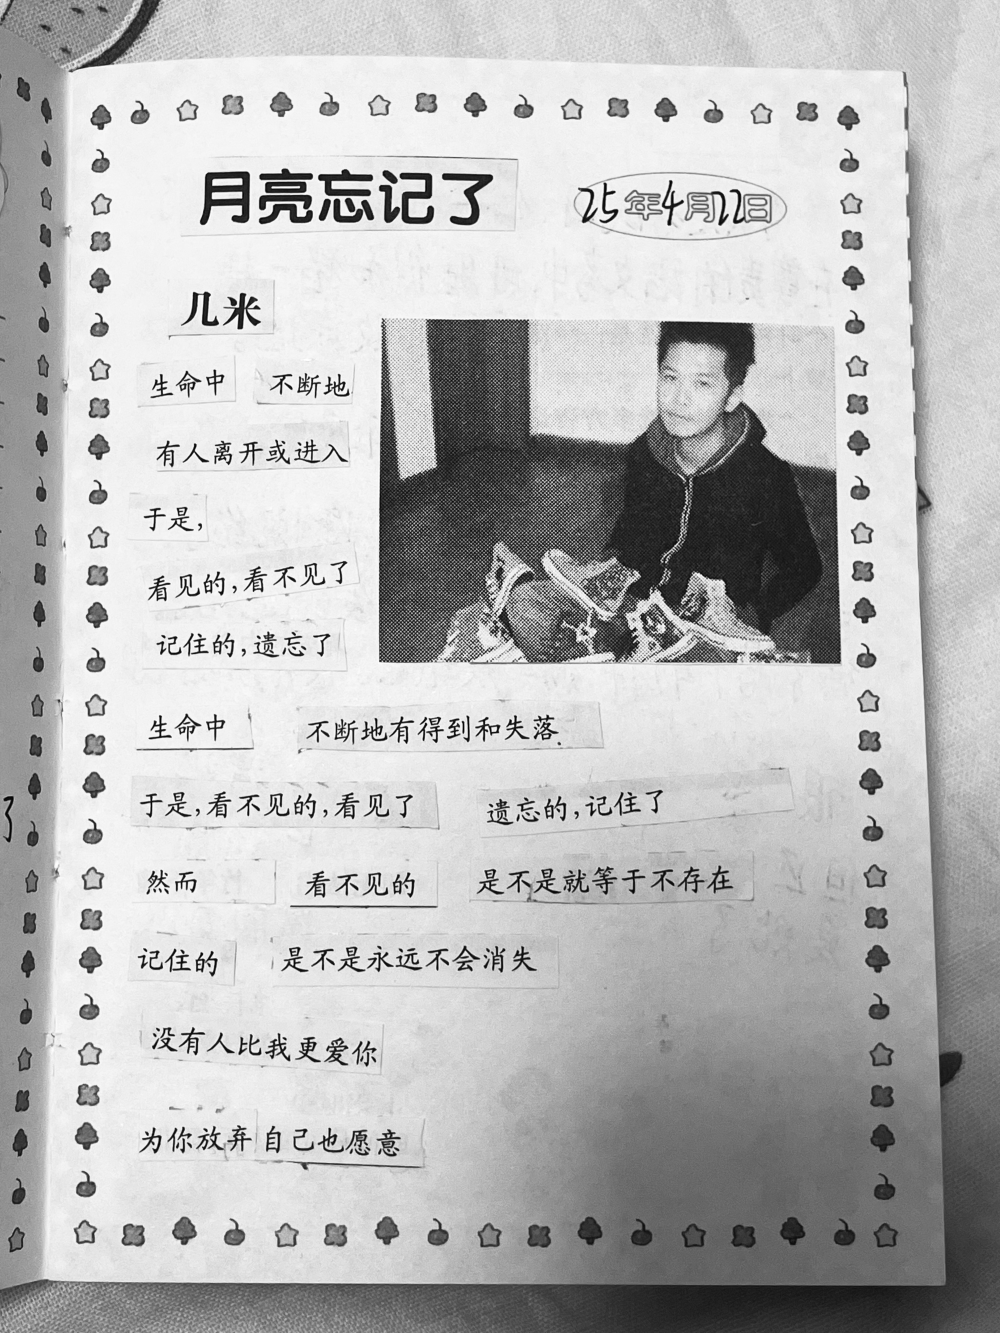 月亮忘记了
25年4月22日
几米
生命中 不断地
有人离开或进入
于是,
看见的,看不见了
记住的,遗忘了
生命中 不断地有得到和失落
于是,看不见的,看见了 遗忘的,记住了
然而 看不见的 是不是就等于不存在
记住的 是不是永远不会消失
没有人比我更爱你
为你放弃自己也愿意
了